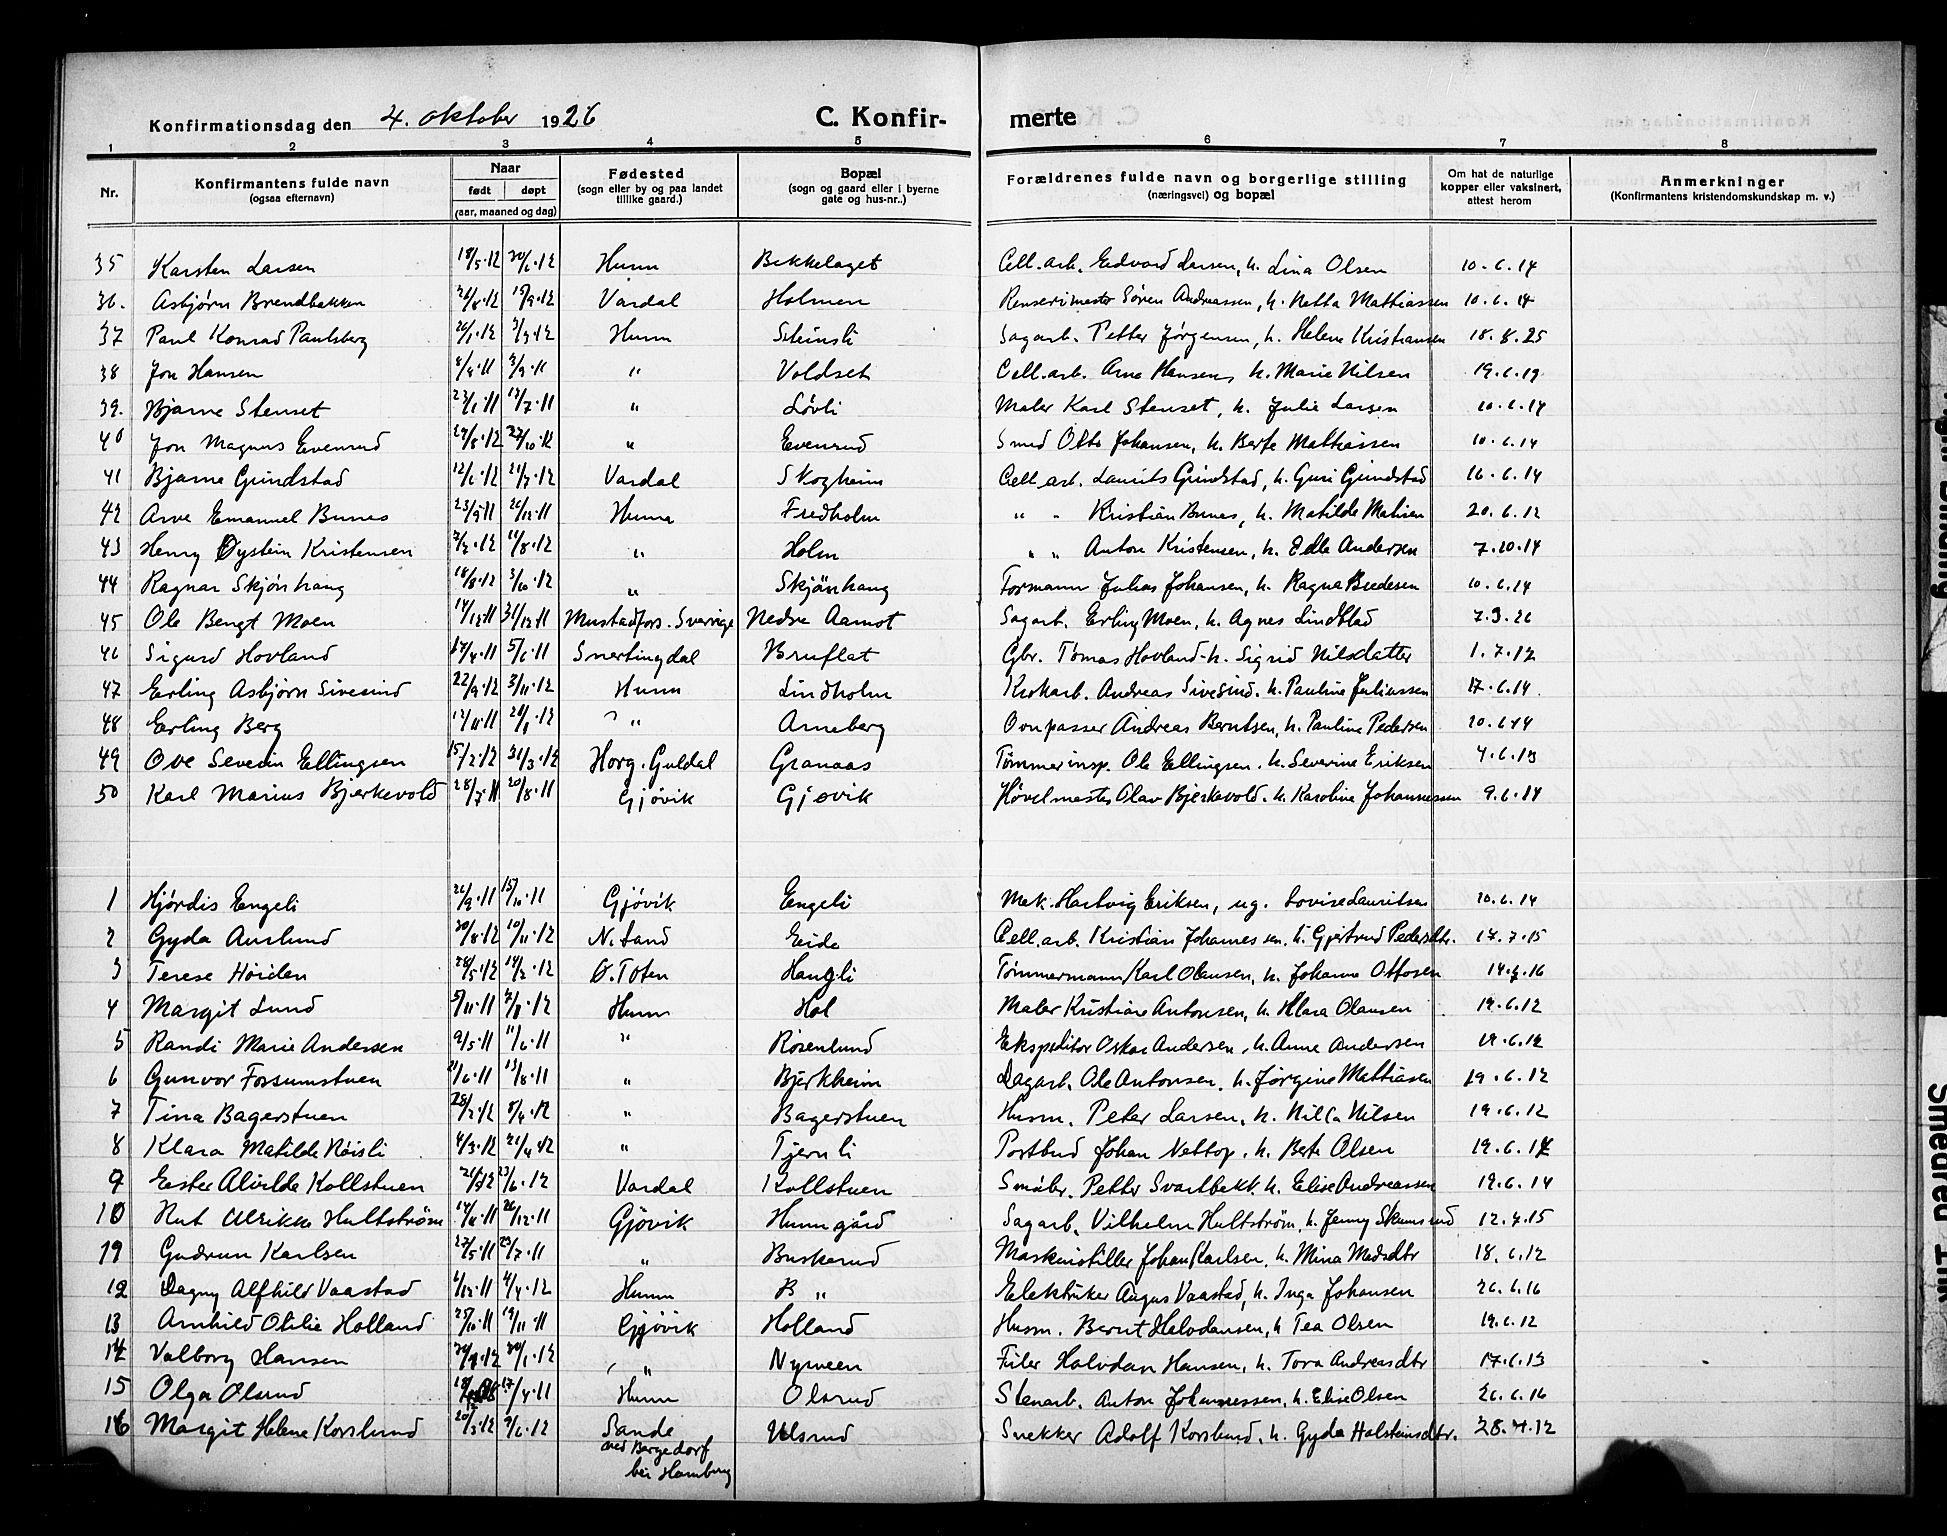 Konfirmationsdag den 4. oktober 1926 C. Konfir- merte
1 2 3 4 5 6 7 8
Nr. Konfirmantens fulde navn (ogsaa efternavn) Naar født døpt (aar, maaned og dag) Fødested (sogn eller by og paa landet tillike gaard.) Bopæl (sogn og gaard eller i byerne gate og hus-nr..) Forældrenes fulde navn og borgerlige stilling (næringsvei) og bopæl Om hat de naturlige kopper eller vaksinert, attest herom Anmerkninger (Konfirmantens kristendomskundskap m. v.)
35 Karsten Larsen 18/5.12 20/6.12 Hunn Bekkelaget Cell.arb. Edvard Larsen, h. Lina Olsen 10.6.14
36. Asbjørn Brendbakken 15/9.12 Vardal Holmen Renserimester Søren Andreassen, h. Netta Mathiassen 10.6.14
37 Paul Konrad Paulsberg 26/1.12 3/3.12 Hunn Steinsli Sagarb. Petter Jørgensen, h. Helene Kristiansen 18.8.25
38 Jon Hansen 3/9.11 " Voldset Cell.arb. Arne Hansen, h. Marie Nilsen 19.6.19
39. Bjarne Stenset 23/1.11 " Løvli Maler Karl Stenset, h. Julie Larsen 10.6.14
40 Jon Magnus Evenrud 29/8.12 27/10.12 " Evenrud Smed Otto Johansen, h. Berte Mathiassen 10.6.14
41 Bjarne Grindstad 12/6.12 21/7.12 Vardal Skogheim Cell.arb. Laurits Grindstad, h. Guri Grindstad 16.6.14
42 Arve Emanuel Bunes 23/9.11 26/12.11 Hunn Fredholm " " Kristian Bunes, h. Matilde Matisen 20.6.12
43 Henry Øystein Kristensen 7/7.12 11/8.12 " Holm " " Anton Kristensen, h. Edle Andersen 7.10.14
44 Ragnar Skjønhaug 18/8.12 3/10.12 " Skjønhaug Formann Julius Johansen, h. Ragna Bredesen 10.6.14
45 Ole Bengt Moen 14/12.11 31/12.11 Mustadfors. Sverrige Nedre Aamot Sagarb. Erling Moen, h. Agnes Lindblad 7.9.26
46 Sigurd Hovland 17/4.11 5/6.11 Snertingdal Bruflat Gbr. Tomas Hovland h. Sigrid Nilsdatter 1.7.12
47 Erling Asbjørn Sivesind 22/9.12 3/11.12 Hunn Lindholm Krokarb. Andreas Sivesind. h. Pauline Juliussen 17.6.14.
48 Erling Berg 12/11.11 " Arneberg Ovnpasser Andreas Berntsen, h. Pauline Pedersen 10.6.14
49 Ove Severin Ellingsen 15/2.12 31/3.12 Horg. Guldal Granaas Tømmerinsp. Ole Ellingsen. h. Severine Eriksen 4.6.13
50 Karl Marius Bjerkevold 28/7.11 20/8.11 Gjøvik Gjøvik Høvelmester Olav Bjerkevold. h. Karoline Johannessen 9.6.14
1 Hjørdis Engeli 26/9.11 15/10.11 Gjøvik Engeli Mek. Hartvig Eriksen, ug. Lovise Lauritsen 10.6.14
2 Gyda Aurlund 20/8.12 10/11.12 N. Land Eide Cell.arb. Kristian Johannessen. h. Gjertrud Pedersdtr. 17.7.15
3 Terese Høiden 28/5.12 14/7.12 Ø. Toten Haugli Tømmermann Karl Olausen, h. Johanne Ottosen 14.7.16
4 Margit Lund 5/11.11 Hunn Hol Maler Kristian Antonsen, h. Klara Olausen 19.6.12
5 Randi Marie Andersen 9/5.11 11/6.11 " Rosenlund Ekspeditør Oskar Andersen, h. Anne Andersen 19.6.12
6 Gunvor Forsumstuen 21/6.11 13/8.11 " Bjerkheim Dagarb. Ole Antonsen. h. Jørgine Mathiasen 19.6.12
7 Tina Bagerstuen 28/2.12 8/4.12 " Bagerstuen Husm. Peter Larsen, h. Nilla Nilsen 19.6.12
8 Klara Matilde Røisli 4/3.12 21/4.12 " Tjernli Portbud Johan Nettop. h. Berte Olsen 19.6.14
9 Ester Alvilde Kollstuen 23/6.12 Vardal Kollstuen Småbr. Petter Svartbekk. h. Elise Andreassen 19.6.14
10 Rut Ulrikke Hultstrøm 26/12.11 Gjøvik Hunn gård Sagarb. Vilhelm Hultstrøm, h. Jenny Skunsrud 12.4.15
19 Gudrun Karlsen 27/5.11 23/7.11 " Buskerud Maskinstiller Johan Karlsen. h. Mina Madsdtr 18.6.12
12 Dagny Alfhild Vaastad 6/12.11 4/4.12 Hunn B " Elektriker August Vaastad, h. Inga Johansen 26.6.16
13 Arnhild Otilie Holland 25/10.11 19/11.11 Gjøvik Holland Husm. Bernt Halvdansen, h. Tea Olsen 19.6.12
14 Valborg Hansen 20/1.12 " Nyveen Filer Halvdan Hansen, h. Tora Andreasdtr 17.6.13
15 Olga Olsrud 17/4.11 Hunn Olsrud Stenarb. Anton Johannessen, h. Elise Olsen 26.6.16
16 Margit Helene Korslund 20/3.12 9/6.12 Sande Velsrud Snekker Adolf Korslund. h. Gyda Halsteinsdtr. 28.4.12
ved Bergedorf
bei Hamburg